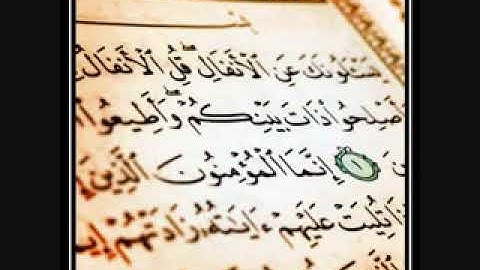 يَسْـَٔلُونَكَ عَنِ ٱلْأَنفَالِۖ قُلِ ٱلْأَنفَالُ
وَأَصْلِحُوا۟ ذَاتَ بَيْنِكُمْۖ وَأَطِيعُوا۟
نَ ١ إِنَّمَا ٱلْمُؤْمِنُونَ ٱلَّذِينَ إِ
ذَا تُلِيَتْ عَلَيْهِمْ ءَايَٰتُهُۥ زَادَتْهُمْ إِيـ